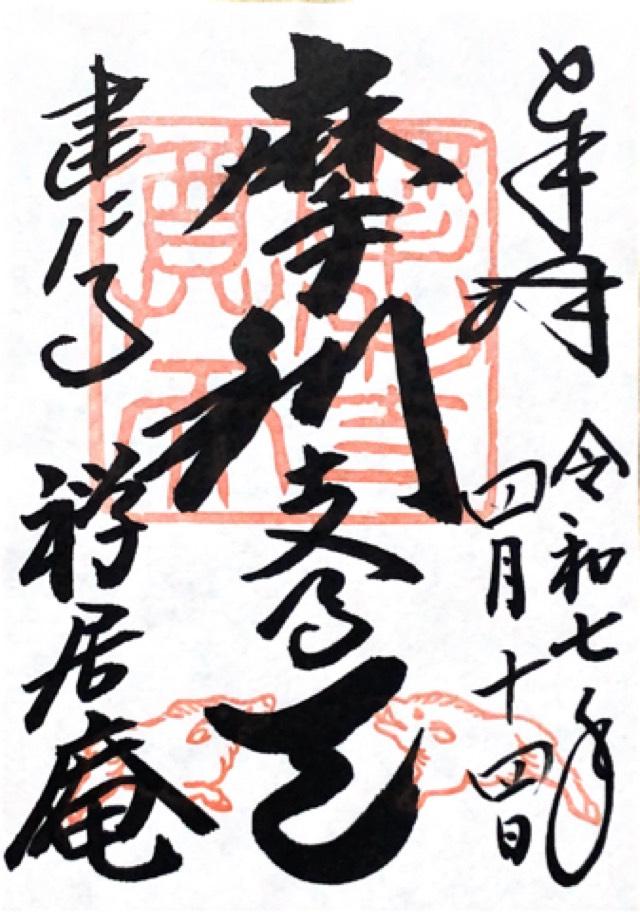 奉拝
令和七年
四月十四日
摩利支尊天
建仁寺
禅居庵